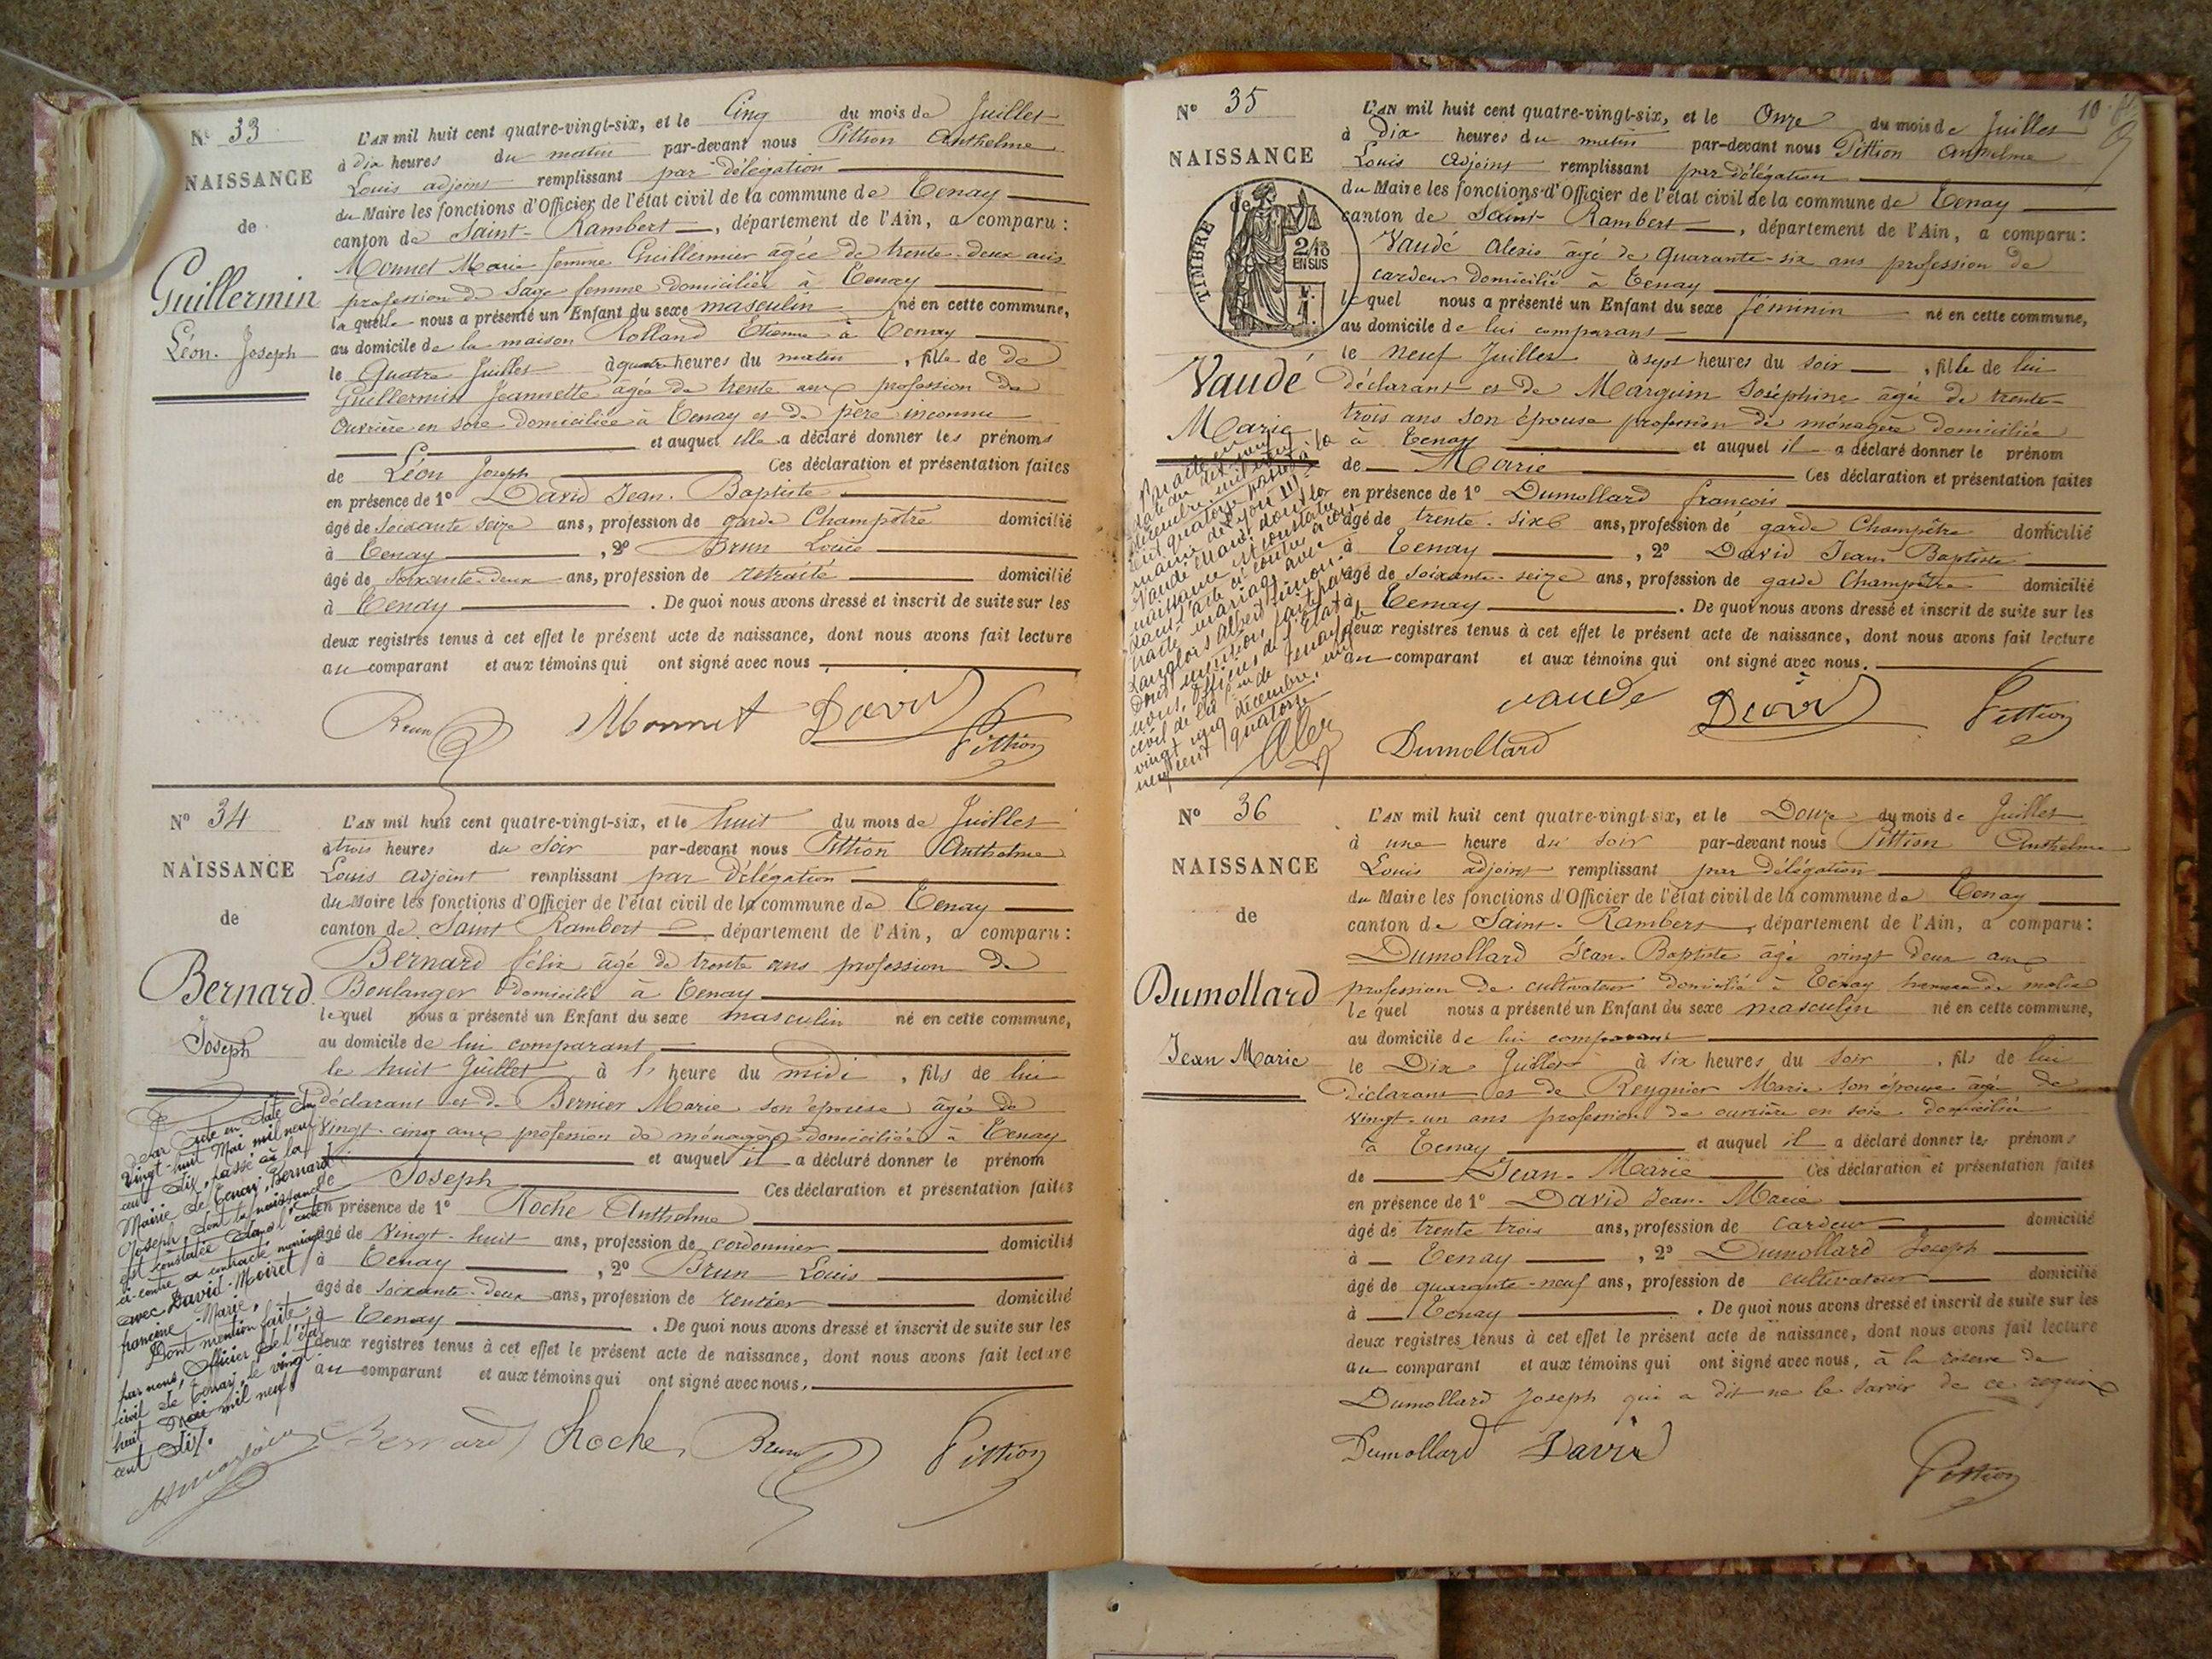 N° 33
NAISSANCE
de
Guillermin
Léon Joseph
L'AN mil huit cent quatre-vingt-six, et le Cinq du mois de Juillet
à dix heures du matin par-devant nous Pittion Anthelme
Louis adjoint remplissant par délégation
du Maire les fonctions d'Officier de l'état civil de la commune de Tenay
canton de Saint-Rambert, département de l'Ain, a comparu :
Monnet Marie femme Guillermier agée de trente-deux ans
profession de Sage femme domiciliée à Tenay
laquelle nous a présenté un Enfant du sexe masculin né en cette commune,
au domicile de la maison Rolland Etienne à Tenay
le Quatre Juillet à quatre heures du matin, fils de de
Guillermin Jeannette agée de trente ans profession de
Ouvrière en soie domiciliée à Tenay et de père inconnu
et auquel elle a déclaré donner les prénoms
de Léon Joseph Ces déclaration et présentation faites
en présence de 1° David Jean-Baptiste
âgé de soixante seize ans, profession de garde Champêtre domicilié
à Tenay, 2° Brun Louis
âgé de soixante-deux ans, profession de retraité domicilié
à Tenay. De quoi nous avons dressé et inscrit de suite sur les
deux registres tenus à cet effet le présent acte de naissance, dont nous avons fait lecture
au comparant et aux témoins qui ont signé avec nous.
Brun Monnet David Pittion
N° 34
NAISSANCE
de
Bernard
Joseph
L'AN mil huit cent quatre-vingt-six, et le huit du mois de Juillet
à trois heures du soir par-devant nous Pittion Anthelme
Louis adjoint remplissant par Délégation
du Maire les fonctions d'Officier de l'état civil de la commune de Tenay
canton de Saint Rambert, département de l'Ain, a comparu :
Bernard félix âgé de trente ans profession de
Boulanger domicilié à Tenay
lequel nous a présenté un Enfant du sexe masculin né en cette commune,
au domicile de lui comparant
le huit Juillet à heure du midi, fils de lui
déclarant et de Bernier Marie son épouse âgée de
Vingt-cinq ans profession de ménagère domiciliée à Tenay
et auquel il a déclaré donner le prénom
de Joseph Ces déclaration et présentation faites
en présence de 1° Roche Anthelme
âgé de Vingt-huit ans, profession de cordonnier domicilié
à Tenay, 2° Brun Louis
âgé de soixante-deux ans, profession de rentier domicilié
à Tenay. De quoi nous avons dressé et inscrit de suite sur les
deux registres tenus à cet effet le présent acte de naissance, dont nous avons fait lecture
au comparant et aux témoins qui ont signé avec nous.
Par acte en date du
vingt-huit Mai mil neuf
cent dix, passé à la
Mairie de Tenay, Bernard
Joseph, dont la naissance
est constatée dans l'acte
ci-contre a contracté mariage
avec David-Moiret
francine-Marie,
Dont mention faite
par nous, Officier de l'état
civil de Tenay, le vingt
huit Mai mil neuf
cent dix.
Bernard Roche Brun Pittion
10
N° 35
NAISSANCE
de
TIMBRE
2/10
EN SUS
Vaudé
Marie
L'AN mil huit cent quatre-vingt-six, et le Onze du mois de Juillet
à Dix heures du matin par-devant nous Pittion Anthelme
Louis Adjoint remplissant par délégation
du Maire les fonctions d'Officier de l'état civil de la commune de Tenay
canton de Saint-Rambert, département de l'Ain, a comparu :
Vaudé Alexis âgé de Quarante-six ans profession de
cardeur domicilié à Tenay
lequel nous a présenté un Enfant du sexe féminin né en cette commune,
au domicile de lui comparant
le Neuf Juillet à sept heures du soir, fille de lui
déclarant et de Marguin Joséphine âgée de trente
trois ans son épouse profession de ménagère domiciliée
à Tenay et auquel il a déclaré donner le prénom
de Marie Ces déclaration et présentation faites
en présence de 1° Dumollard françois
âgé de trente-six ans, profession de garde Champêtre domicilié
à Tenay, 2° David Jean Baptiste
âgé de soixante-seize ans, profession de garde Champêtre domicilié
à Tenay. De quoi nous avons dressé et inscrit de suite sur les
deux registres tenus à cet effet le présent acte de naissance, dont nous avons fait lecture
au comparant et aux témoins qui ont signé avec nous.
Par acte en
date du dix neuf
décembre mil neuf
cent quatorze passé à la
mairie de Lyon III
Vaudé Marie dont la
naissance est constatée
dans l'acte ci contre a con
tracté mariage avec
Langlois Albert
Dont mention, fait par
nous, Officier de l'Etat
civil de Tenay
vingt cinq décembre mil
neuf cent quatorze
vaude David Pittion
Dumollard
N° 36
NAISSANCE
de
Dumollard
Jean Marie
L'AN mil huit cent quatre-vingt-six, et le Douze du mois de Juillet
à une heure du soir par-devant nous Pittion Anthelme
Louis adjoint remplissant par délégation
du Maire les fonctions d'Officier de l'état civil de la commune de Tenay
canton de Saint-Rambert, département de l'Ain, a comparu :
Dumollard Jean-Baptiste âgé vingt deux ans
profession de cultivateur domicilié à Tenay hameau de
lequel nous a présenté un Enfant du sexe masculin né en cette commune,
au domicile de lui comparant
le Dix Juillet à six heures du soir, fils de lui
Déclarant et de Reygnier Marie son épouse âgée de
vingt-un ans profession de ouvrière en soie domiciliée
à Tenay et auquel il a déclaré donner les prénoms
de Jean-Marie Ces déclaration et présentation faites
en présence de 1° David Jean-Marie
âgé de trente trois ans, profession de cardeur domicilié
à Tenay, 2° Dumollard Joseph
âgé de quarante-neuf ans, profession de cultivateur domicilié
à Tenay. De quoi nous avons dressé et inscrit de suite sur les
deux registres tenus à cet effet le présent acte de naissance, dont nous avons fait lecture
au comparant et aux témoins qui ont signé avec nous, à la réserve de
Dumollard Joseph qui a dit ne le savoir de ce requis
Dumollard David Pittion